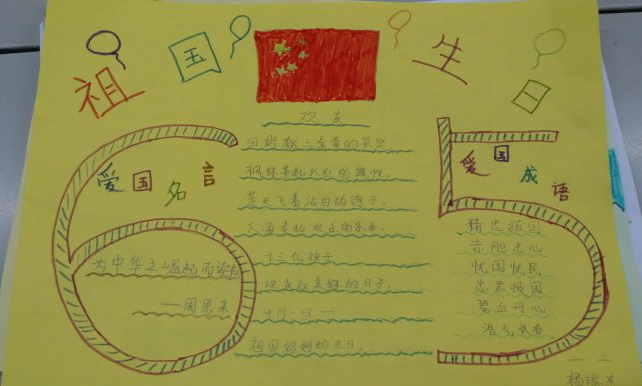 祖国生日
爱国名言
为中华之崛起而读书
——周恩来
欢庆
田野献上金黄的果实,
枫林举起火红的旗帜,
蓝天飞着洁白的鸽子,
大海奏起欢乐的乐曲,
十三亿孩子
欢庆着美好的日子,
十月一日——
祖国妈妈的生日。
爱国成语
精忠报国
赤胆忠心
忧国忧民
忠君报国
碧血丹心
浩气长存
二 二